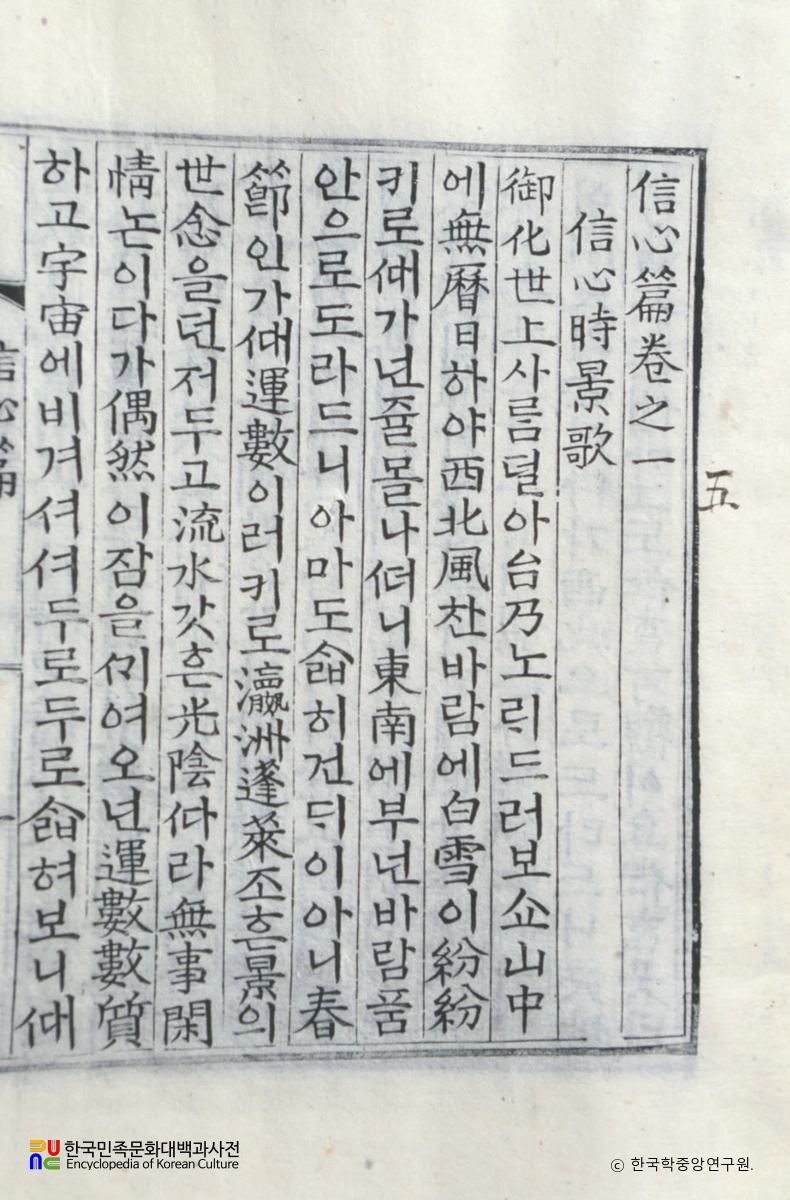 信心篇卷之一
信心時景歌
御化世上사름덜아台乃노ᄅᆡ드러보쇼山中
에無曆日하야西北風찬바람에白雪이紛紛
키로ᄯᅢ가년쥴몰나ᄯᅥ니東南에부년바람품
안으로도라드니아마도슯히건ᄃᆡ이아니春
節인가ᄯᅢ運數이러키로瀛洲蓬萊조흔景의
世念을던져두고流水갓흔光陰ᄯᅡ라無事閑
情논이다가偶然이잠을ᄭᆡ여오년運數數質
하고宇宙에비겨셔셔두로두로슯혀보니ᄯᅢ
信心篇
五
한국민족문화대백과사전
Encyclopedia of Korean Culture
ⓒ 한국학중앙연구원.